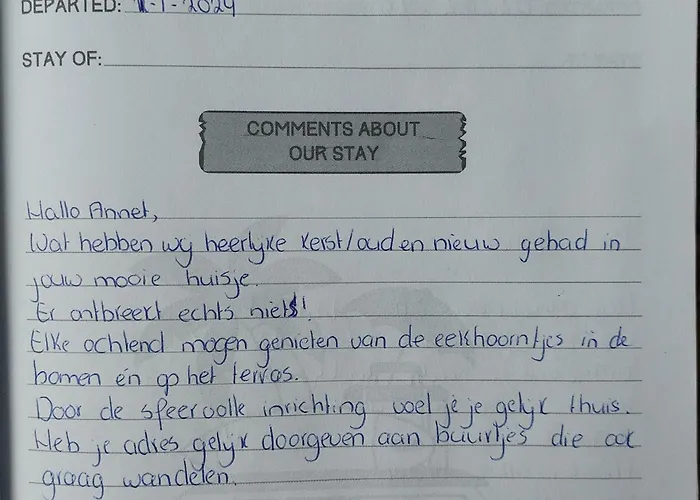 DEPARTED: 1-1-2024
STAY OF:
COMMENTS ABOUT
OUR STAY
Hallo Annet,
Wat hebben wy heerlyke kerst/oud en nieuw gehad in
jouw mooie huisje.
Er ontbreekt echts niets!
Elke ochtend mogen genieten van de eekhoorntjes in de
bomen én op het terras.
Door de sfeervolle inrichting voel je je gelyk thuis.
Heb je adres gelyk doorgeven aan buurtjes die ook
graag wandelen.